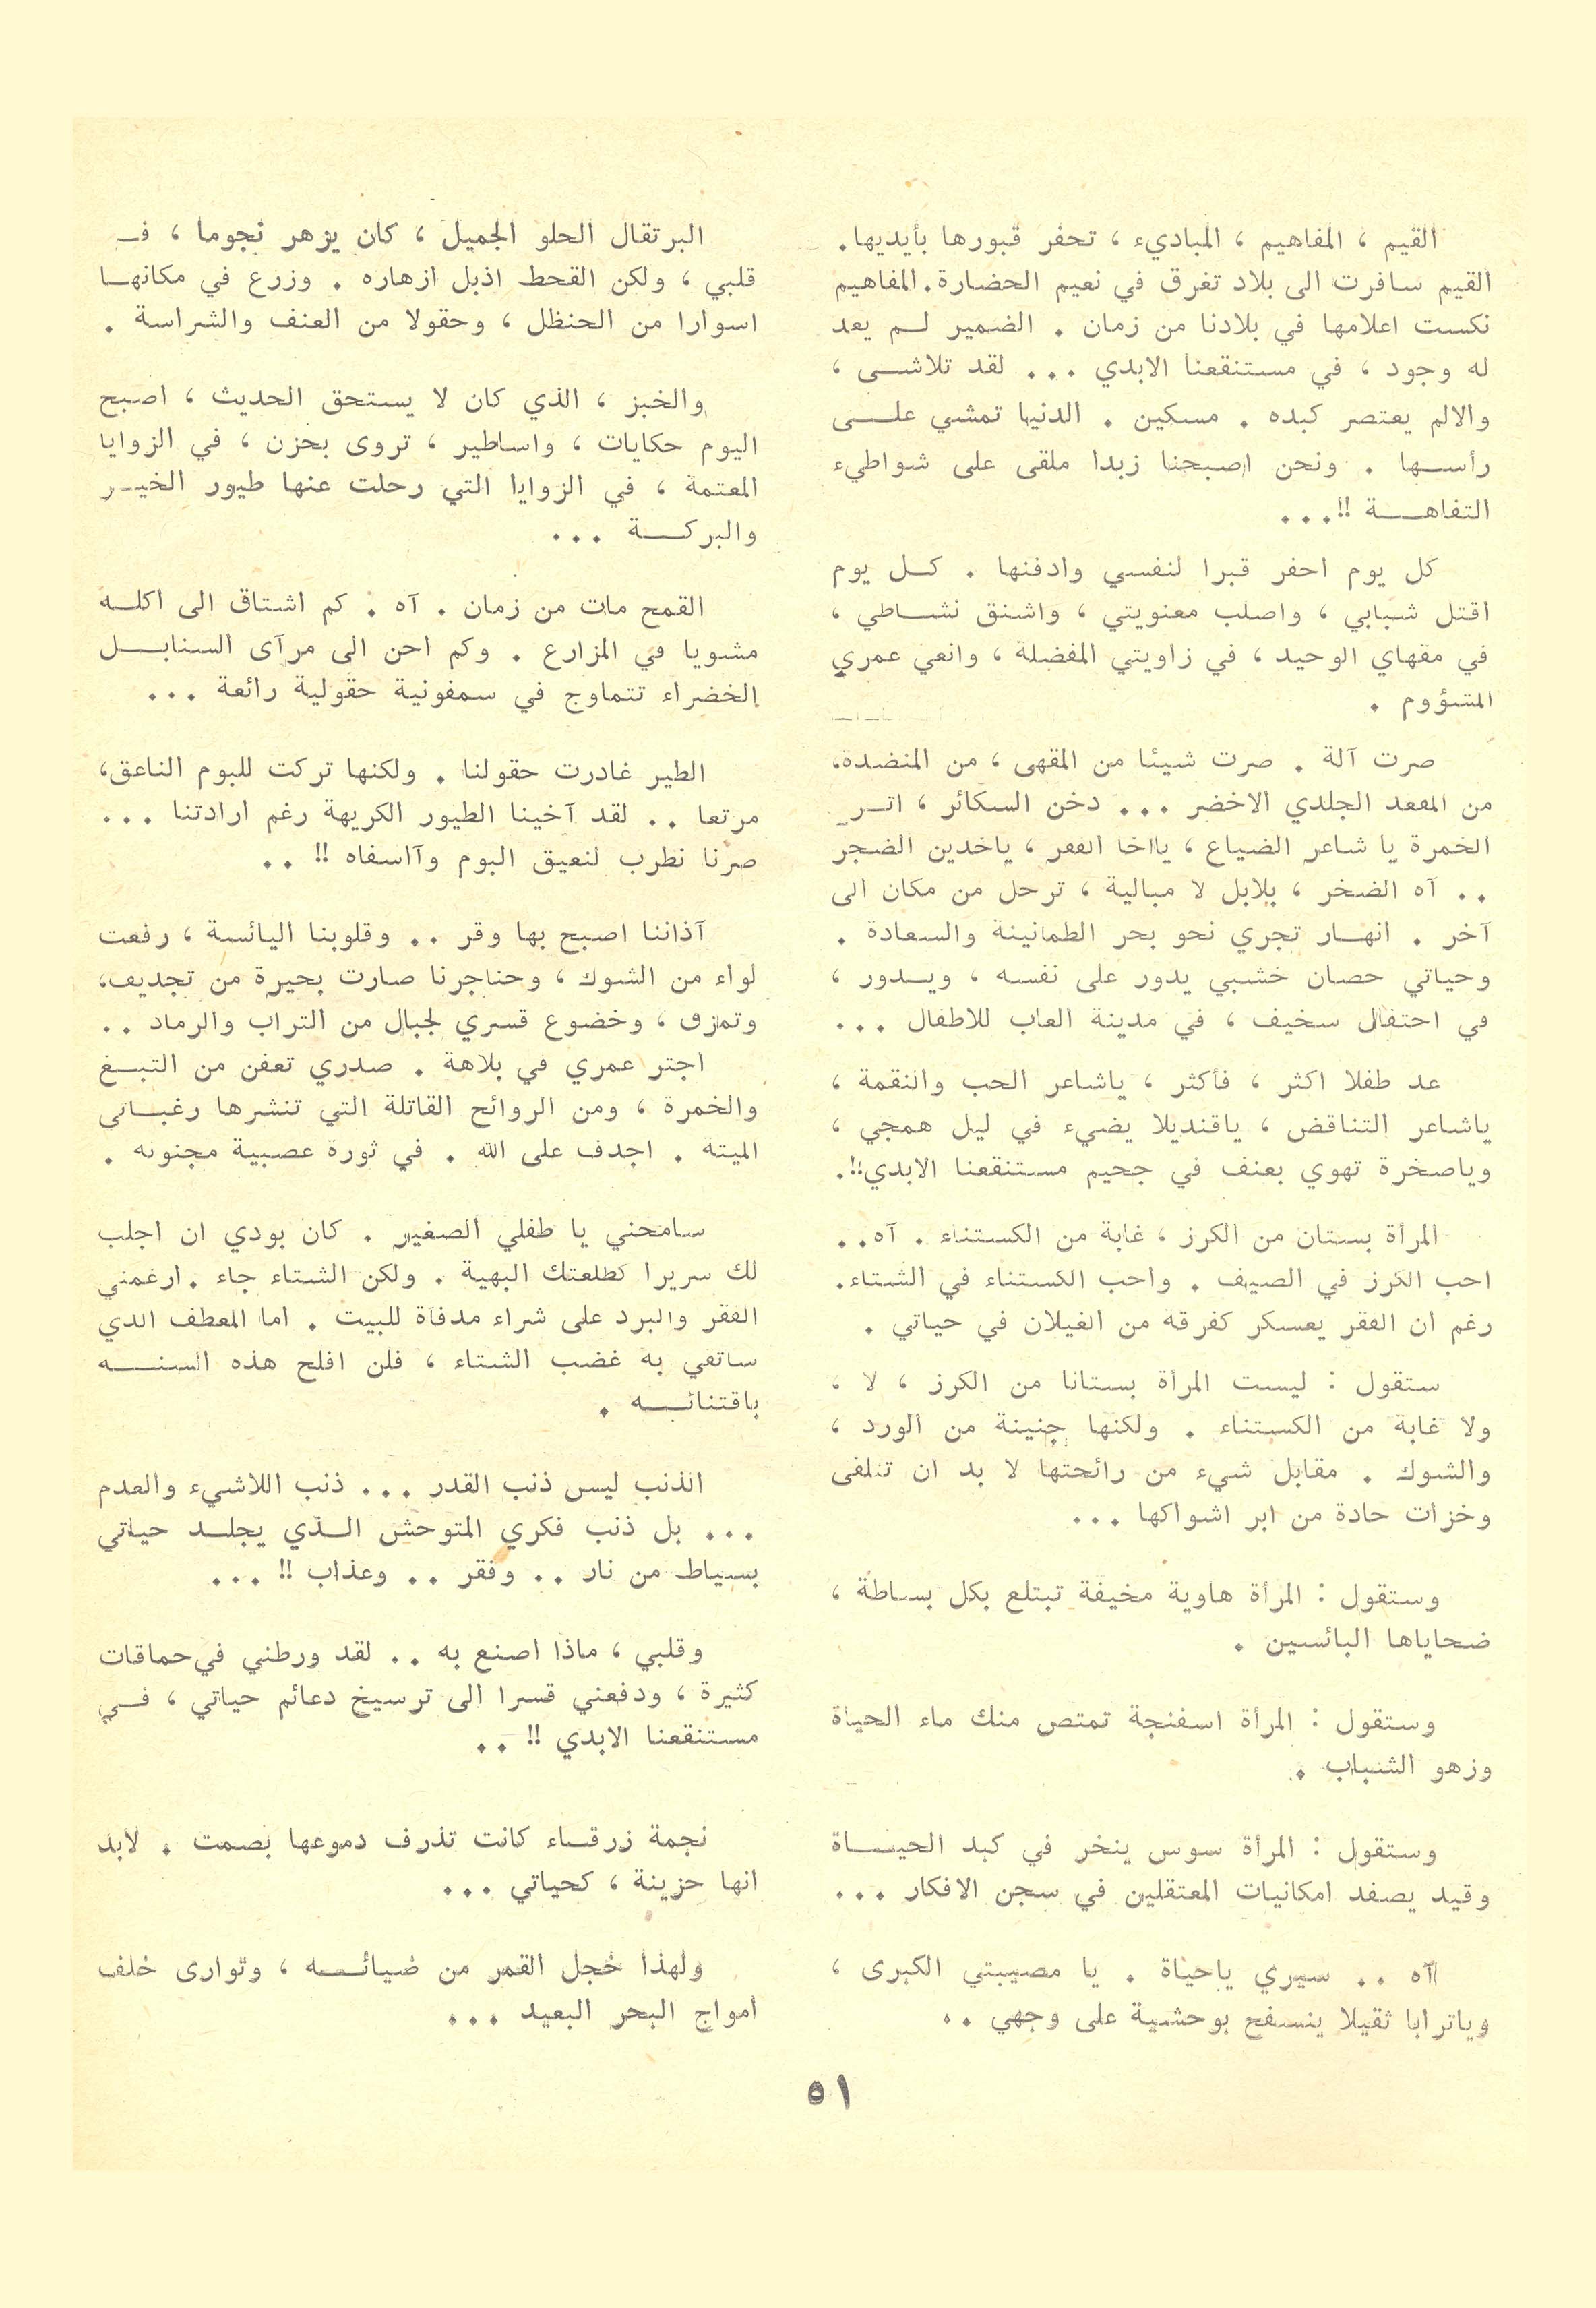 القيم ، المفاهيم ، المباديء ، تحفر قبورها بأيديها .
القيم سافرت الى بلاد تغرق في نعيم الحضارة . المفاهيم
نكست اعلامها في بلادنا من زمان . الضمير لم يعد
له وجود ، في مستنقعنا الابدي ... لقد تلاشى ،
والالم يعتصر كبده . مسكين . الدنيا تمشي على
رأسها . ونحن اصبحنا زبدا ملقى على شواطيء
التفاهة !! ...
كل يوم احفر قبرا لنفسي وادفنها . كل يوم
اقتل شبابي ، واصلب معنويتي ، واشنق نشاطي ،
في مقهاي الوحيد ، في زاويتي المفضلة ، وانعي عمري
المشؤوم .
صرت آلة . صرت شيئا من المقهى ، من المنضدة،
من المقعد الجلدي الاخضر ... دخن السكائر ،
الخمرة يا شاعر الضياع ، يااخا الفقر ، ياخدين الضجر
.. آه الضخر ، بلابل لا مبالية ، ترحل من مكان الى
آخر . انهار تجري نحو بحر الطمانينة والسعادة .
وحياتي حصان خشبي يدور على نفسه ، ويدور ،
في احتفال سخيف ، في مدينة العاب للاطفال ...
عد طفلا اكثر ، فأكثر ، ياشاعر الحب والنقمة ،
ياشاعر التناقض ، ياقنديلا يضيء في ليل همجي ،
وياصخرة تهوي بعنف في جحيم مستنقعنا الابدي !!.
المرأة بستان من الكرز ، غابة من الكستناء . آه ..
احب الكرز في الصيف . واحب الكستناء في الشتاء .
رغم ان الفقر يعسكر كفرقة من الغيلان في حياتي .
ستقول : ليست المرأة بستانا من الكرز ، لا ،
ولا غابة من الكستناء . ولكنها جنينة من الورد ،
والشوك . مقابل شيء من رائحتها لا بد ان تتلقى
وخزات حادة من ابر اشواكها ...
وستقول : المرأة هاوية مخيفة تبتلع بكل بساطة ،
ضحاياها البائسين .
وستقول : المرأة اسفنجة تمتص منك ماء الحياة
وزهو الشباب .
وستقول : المرأة سوس ينخر في كبد الحياة
وقيد يصفد امكانيات المعتقلين في سجن الافكار ...
آه .. سيري ياحياة . يا مصيبتي الكبرى ،
وياترابا ثقيلا ينسفح بوحشية على وجهي ..
البرتقال الحلو الجميل ، كان يزهر نجوما ، في
قلبي ، ولكن القحط اذبل ازهاره . وزرع في مكانها
اسوارا من الحنظل ، وحقولا من العنف والشراسة .
والخبز ، الذي كان لا يستحق الحديث ، اصبح
اليوم حكايات ، واساطير ، تروى بحزن ، في الزوايا
المعتمة ، في الزوايا التي رحلت عنها طيور الخير
والبركة ...
القمح مات من زمان . آه . كم اشتاق الى اكله
مشويا في المزارع . وكم احن الى مرآى السنابل
الخضراء تتماوج في سمفونية حقولية رائعة ...
الطير غادرت حقولنا . ولكنها تركت للبوم الناعق،
مرتعا .. لقد آخينا الطيور الكريهة رغم ارادتنا ...
صرنا نطرب لنعيق البوم وآاسفاه !! ..
آذاننا اصبح بها وقر .. وقلوبنا اليائسة ، رفعت
لواء من الشوك ، وحناجرنا صارت بحيرة من تجديف،
وتمزق ، وخضوع قسري لجبال من التراب والرماد ..
اجتر عمري في بلاهة . صدري تعفن من التبغ
والخمرة ، ومن الروائح القاتلة التي تنشرها رغباتي
الميتة . اجدف على الله . في ثورة عصبية مجنونة .
سامحني يا طفلي الصغير . كان بودي ان اجلب
لك سريرا كطلعتك البهية . ولكن الشتاء جاء . ارغمني
الفقر والبرد على شراء مدفأة للبيت . اما المعطف الذي
ساتقي به غضب الشتاء ، فلن افلح هذه السنه
باقتنائه .
الذنب ليس ذنب القدر ... ذنب اللاشيء والعدم
... بل ذنب فكري المتوحش الذي يجلد حياتي
بسياط من نار .. وفقر .. وعذاب !! ...
وقلبي ، ماذا اصنع به .. لقد ورطني في حماقات
كثيرة ، ودفعني قسرا الى ترسيخ دعائم حياتي ، في
مستنقعنا الابدي !! ..
نجمة زرقاء كانت تذرف دموعها بصمت . لابد
انها حزينة ، كحياتي ...
ولهذا خجل القمر من ضيائه ، وتوارى خلف
امواج البحر البعيد ...
٥١